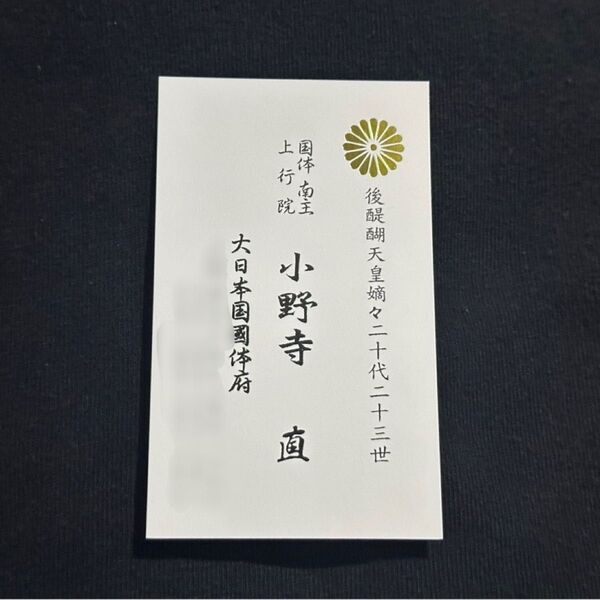 後醍醐天皇嫡々二十代二十三世
国体南主
上行院
小野寺 直
大日本国國体府